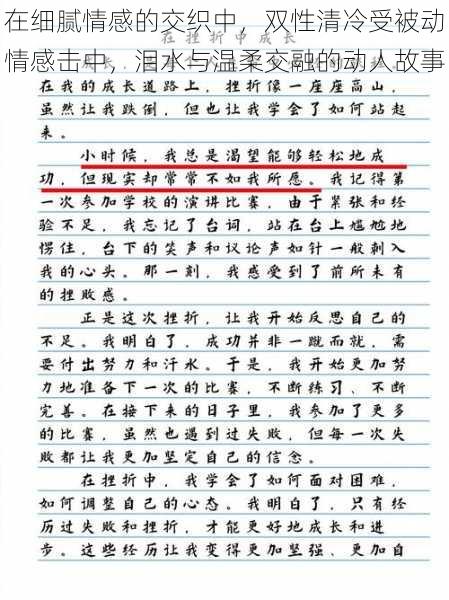 在细腻情感的交织中，双性清冷受被动
情感击中，泪水与温柔交融的动人故事
在挫折中成长
在我的成长道路上，挫折像一座座高山，
虽然让我跌倒，但也让我学会了如何站起
来。
小时候，我总是渴望能够轻松地成
功，但现实却常常不如我所愿。我记得第
一次参加学校的演讲比赛，由于紧张和经
验不足，我忘记了台词，站在台上尴尬地
愣住，台下的笑声和议论声如针一般刺入
我的心头。那一刻，我感受到了前所未有
的挫败感。
正是这次挫折，让我开始反思自己的
不足。我明白了，成功并非一蹴而就，需
要付出努力和汗水。于是，我开始更加努
力地准备下一次的比赛，不断练习、不断
完善。在接下来的日子里，我参加了更多
的比赛，虽然也遇到过失败，但每一次失
败都让我更加坚定自己的信念。
在挫折中，我学会了如何面对困难，
如何调整自己的心态。我明白了，只有经
历过失败和挫折，才能更好地成长和进
步。这些经历让我变得更加坚强、更加自